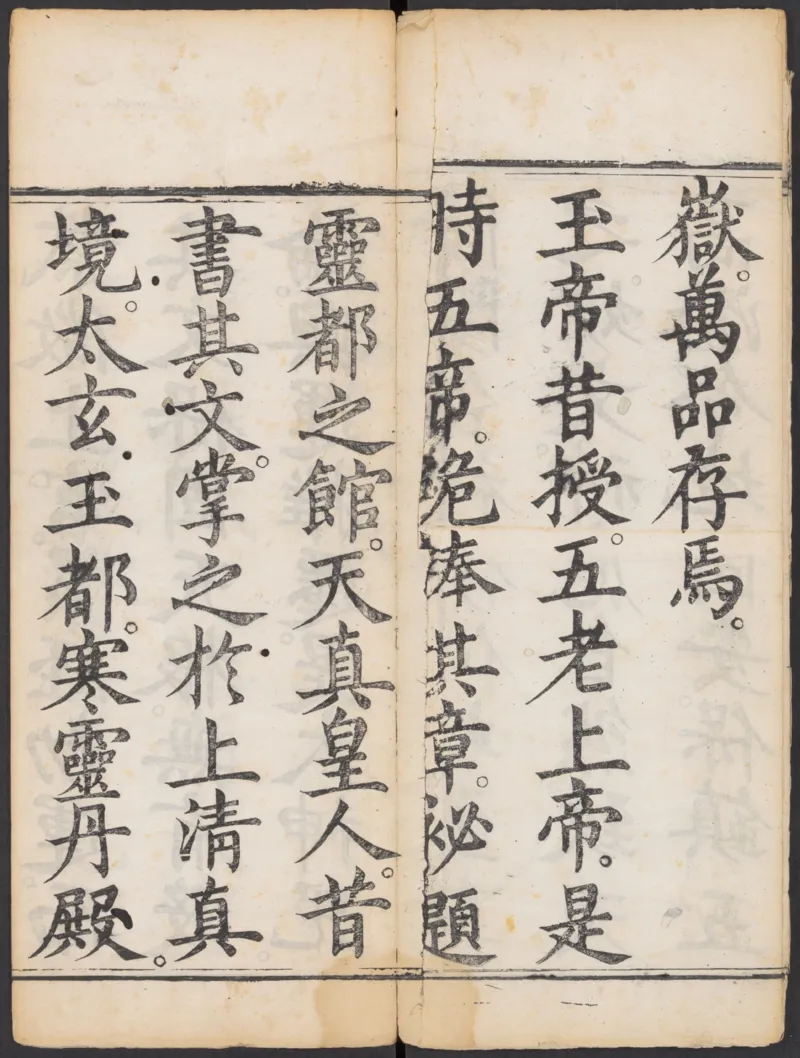 嶽。萬品存焉。
玉帝昔授。五老上帝。是
時五帝。跪奉其章。祕題
靈都之館。天真皇人。昔
書其文。掌之於上清真
境。太玄玉都。寒靈丹殿。